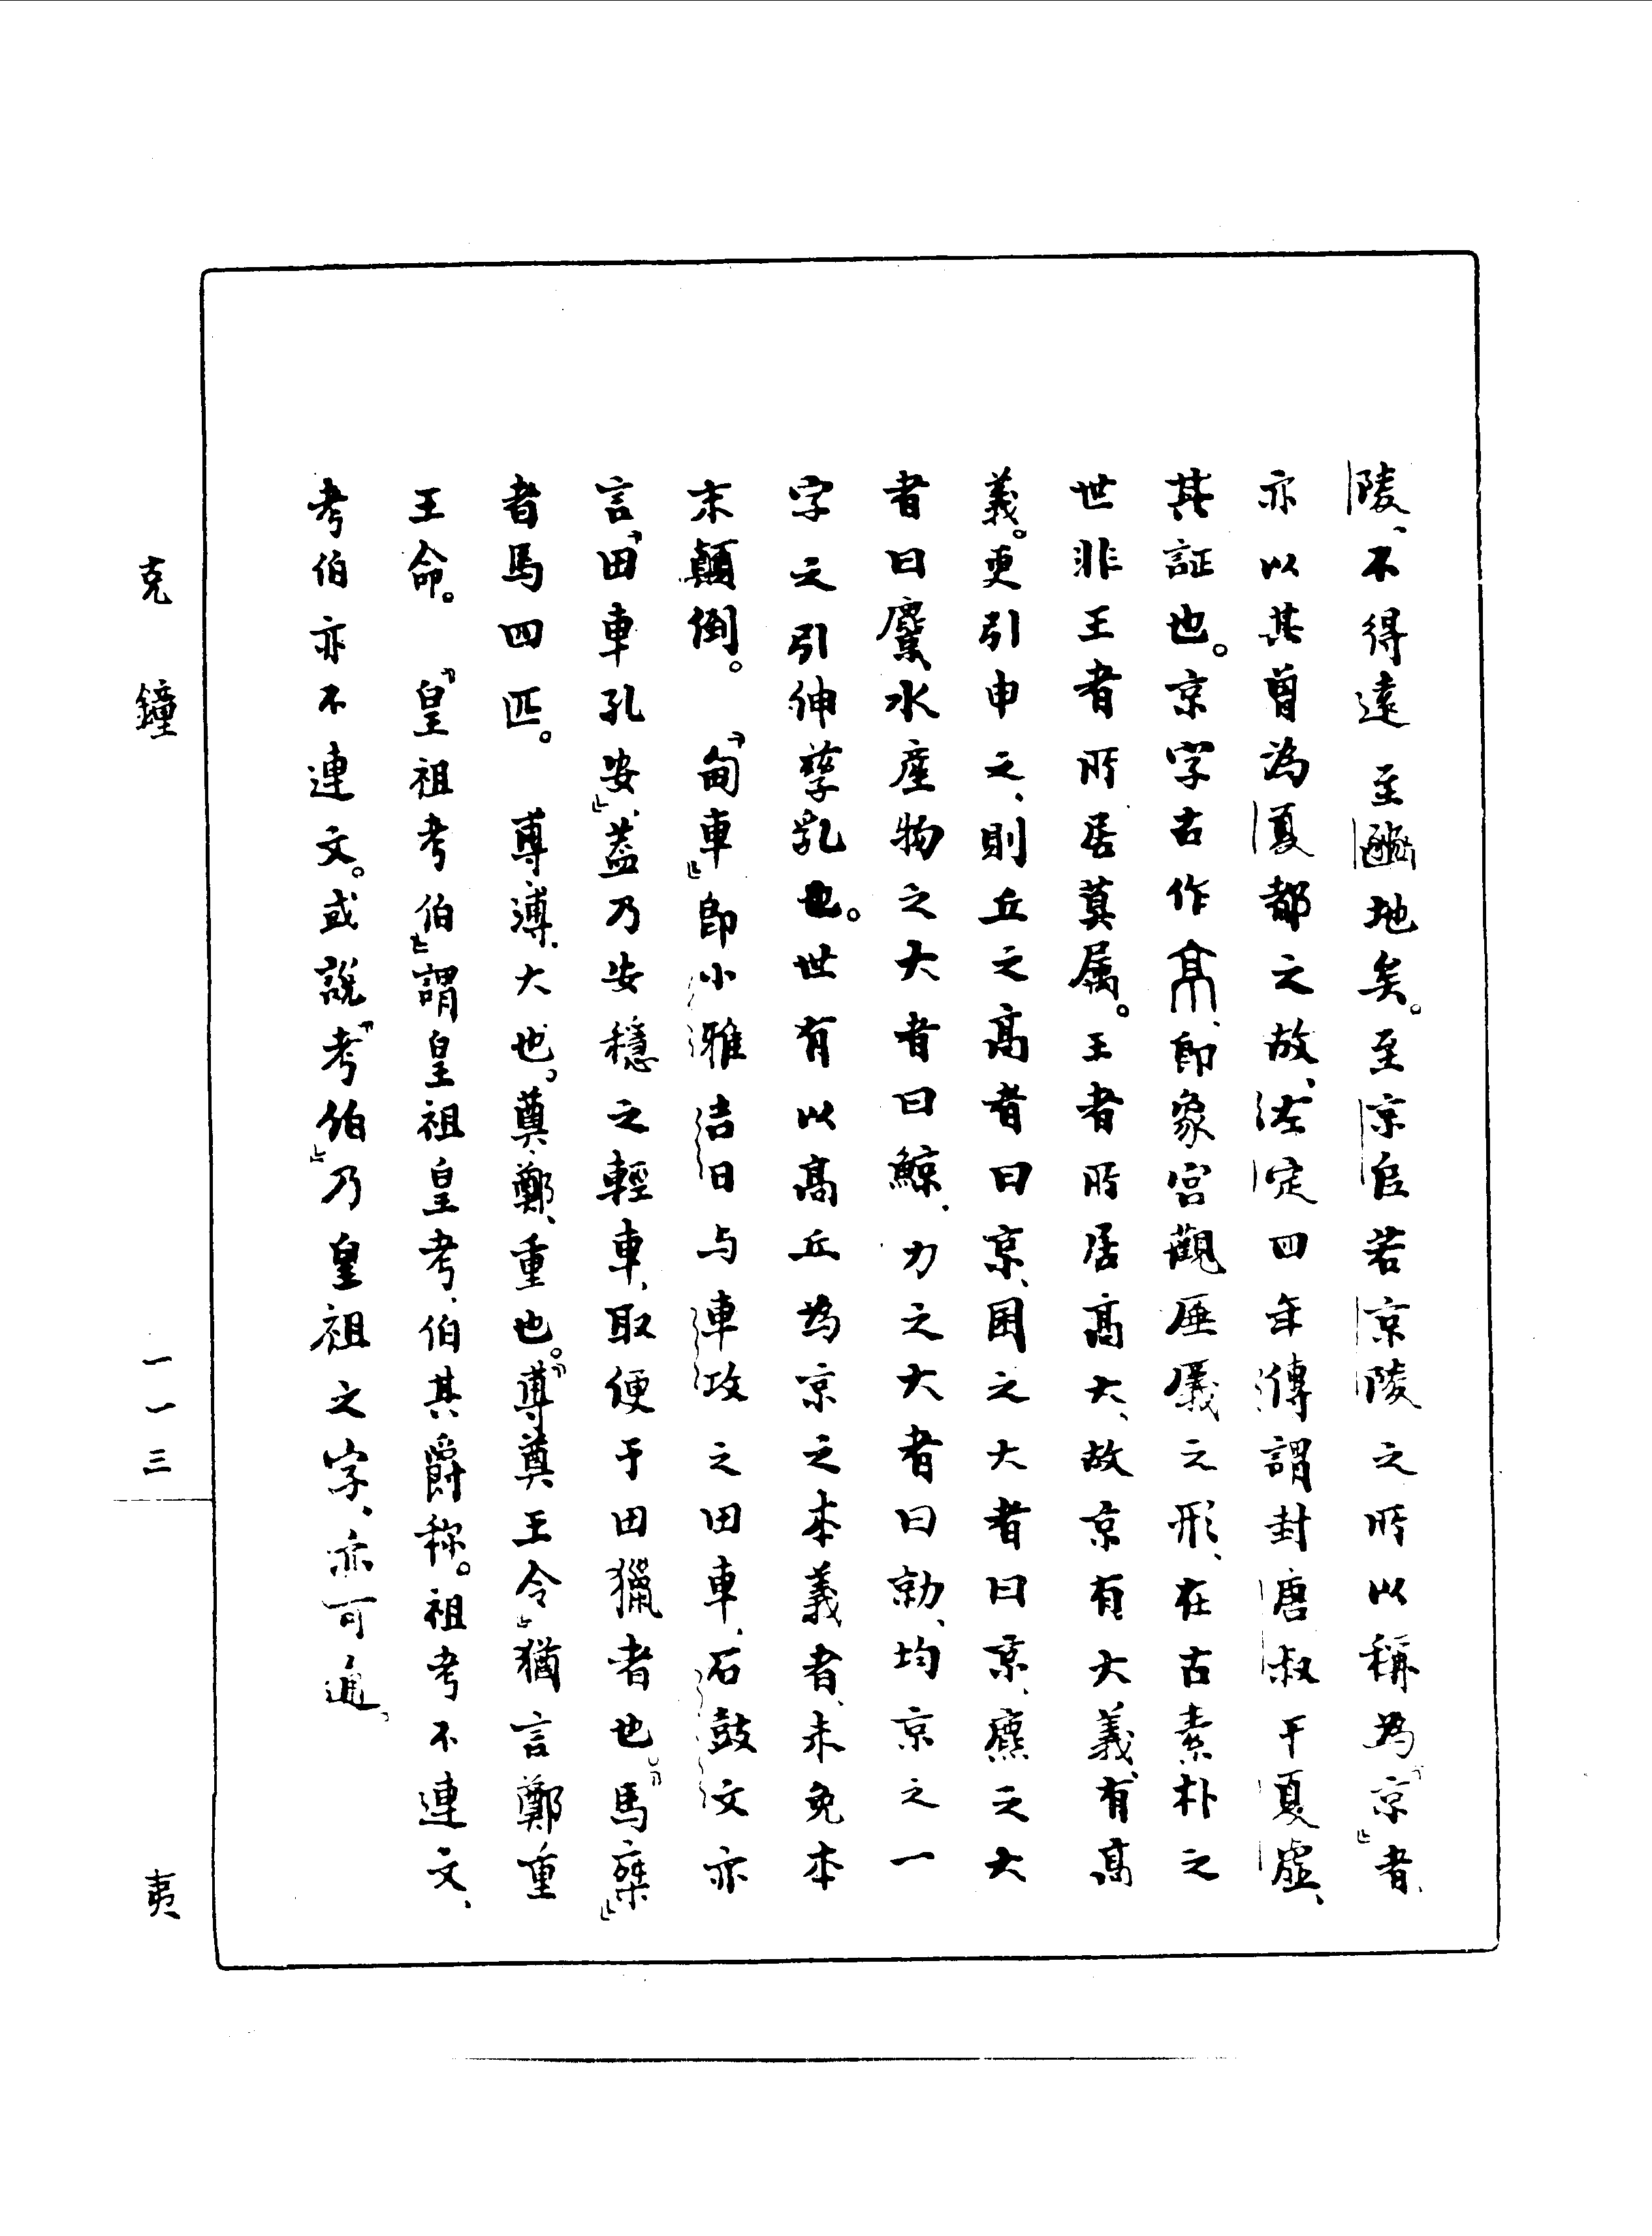 陵、不得遠至豳地矣。至京𠂤若京陵之所以稱為「京」者、
亦以其曾為夏都之故、左定四年傳謂封唐叔于夏虛、
其証也。京字古作、即象宮觀厜㕒之形、在古素朴之
世非王者所居莫屬。王者所居高大、故京有大義、有高
義。更引申之、則丘之高者曰京、囷之大者曰京、麃之大
者曰麖、水產物之大者曰鯨、力之大者曰勍、均京之一
字之引伸孳乳也。世有以高丘為京之本義者、未免本
末顛倒。　「甸車」即小雅吉日与車攻之田車、石鼓文亦
言「田車孔安」、蓋乃安穩之輕車、取便于田獵者也。「馬椉」
者馬四匹。　尃溥、大也。奠鄭、重也。「尃奠王令」猶言鄭重
王命。　「皇祖考伯」謂皇祖皇考、伯其爵称。祖考不連文、
考伯亦不連文。或說「考伯」乃皇祖之字、亦可通。
克鐘
一一三
夷